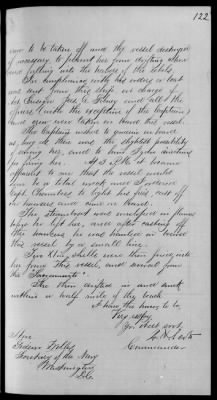 122
crew to be taken off and the vessel destroyed
if necessary to prevent her from drifting ashore
and falling into the hands of the rebels.
In compliance with his orders a boat
was sent from this ship in charge of
and all the
officers (with the exception of the Captain)
and crew were taken on board this vessel.
The Captain wished to remain on board
as long as there was the slightest possibility
of saving her, and to have
for firing her. At 3 P.M. it became
apparent to me that the vessel would
soon be a total wreck and I ordered
Capt Chambers to light his fire, cut off
his hawsers and come on board.
The steamboat was enveloped in flames
when he left her, and after casting off
the hawsers he was hauled on board
this vessel by a small line.
shells were then fired into
her from this vessel, and several from
the "Sacramento".
She then drifted in and sunk
within a half mile of the beach
I have the honor to be,
Very resp'y
Yr. Obed. servt.
Commander
Hon.
Gideon Welles
Secretary of the Navy
Washington
D.C.